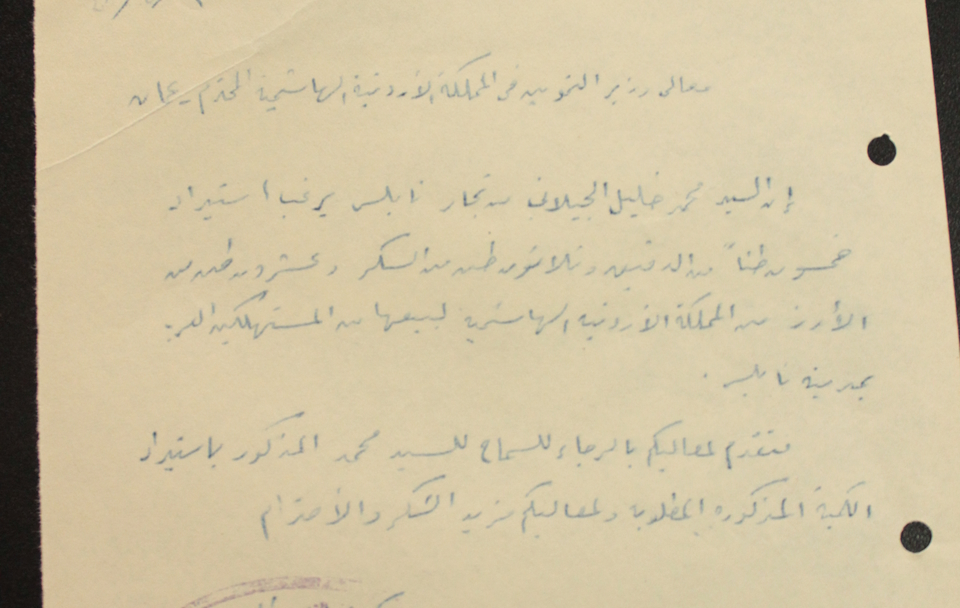 معالي وزير التموين في المملكة الأردنية الهاشمية المحترم - عمان
إن السيد محمد خليل الجيلاني من تجار نابلس يرغب استيراد
خمسون طناً من الدقيق وثلاثون طن من السكر وعشرون طن من
الأرز من المملكة الأردنية الهاشمية لبيعها من المستهلكين العرب
بمدينة نابلس .
فنتقدم لمعاليكم بالرجاء للسماح للسيد محمد المذكور باستيراد
الكمية المذكورة المطلوبة ولمعاليكم مزيد الشكر والأحترام